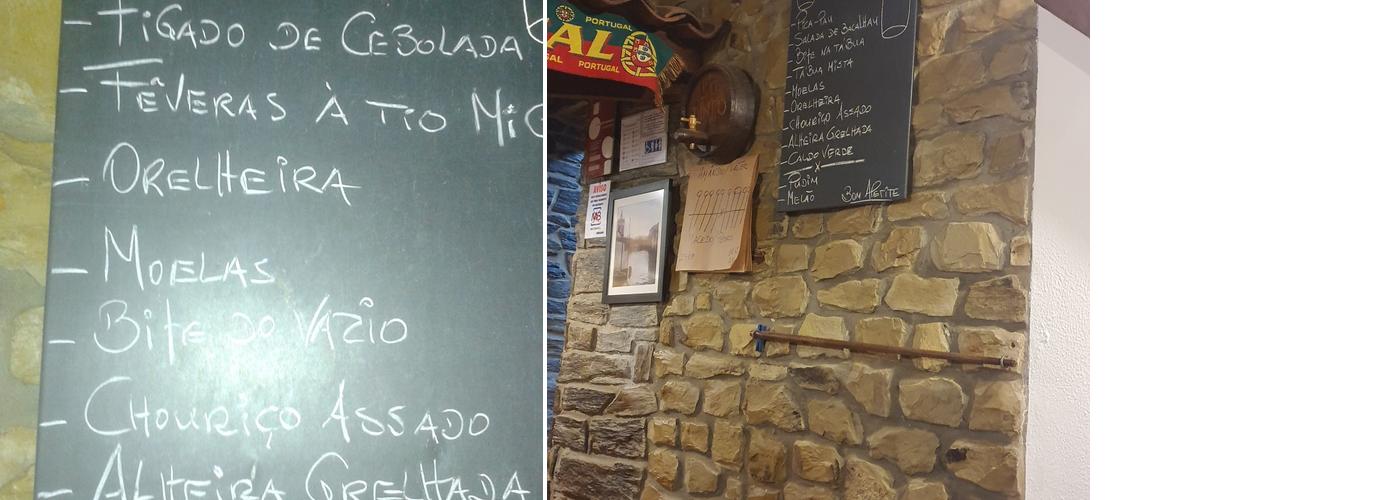 - FÍGADO DE CEBOLADA
- FÊVERAS À TIO MIG
- ORELHEIRA
- MOELAS
- BIFE DO VAZIO
- CHOURIÇO ASSADO
- ALHEIRA GRELHADA
PORTUGAL
AL
GAL PORTUGAL
- PICA-PAU
- SALADA DE BACALHAU
- BIFE NA TÁBUA
- TÁBUA MISTA
- MOELAS
- ORELHEIRA
- CHOURIÇO ASSADO
- ALHEIRA GRELHADA
- CALDO VERDE
x
- PUDIM
- MELÃO BOM APETITE
AVISO
MB